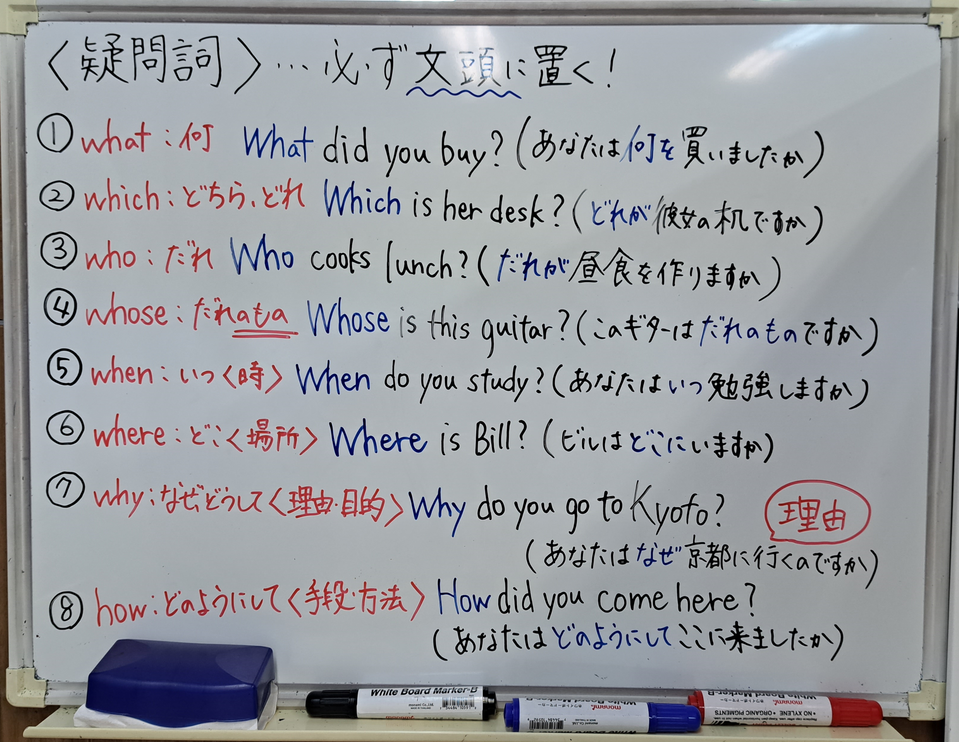 〈疑問詞〉…必ず文頭に置く!
① what:何 What did you buy?(あなたは何を買いましたか)
② which:どちら、どれ Which is her desk?(どれが彼女の机ですか)
③ who:だれ Who cooks lunch?(だれが昼食を作りますか)
④ whose:だれのもの Whose is this guitar?(このギターはだれのものですか)
⑤ when:いつ〈時〉 When do you study?(あなたはいつ勉強しますか)
⑥ where:どこ〈場所〉 Where is Bill?(ビルはどこにいますか)
⑦ why:なぜ、どうして〈理由・目的〉 Why do you go to Kyoto? 理由
(あなたはなぜ京都に行くのですか)
⑧ how:どのようにして〈手段・方法〉 How did you come here?
(あなたはどのようにしてここに来ましたか)
White Board Marker-B
monami
White Board
monami
White Board Marker-B
• NO XYLENE • ORGANIC PIGMENTS